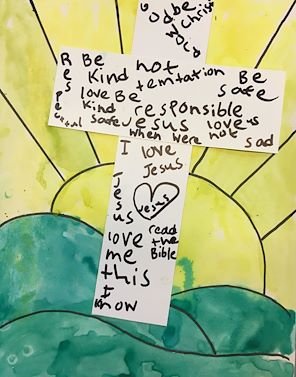 God be
Christ
void
Be
not
Kind
temtation
Be
love Be
safe
Kind
responsible
safe
Jesus love us
when were not
sad
Respectful
I love
Jesus
Jesus
Jesus
love
me
this
I
know
read
the
Bible